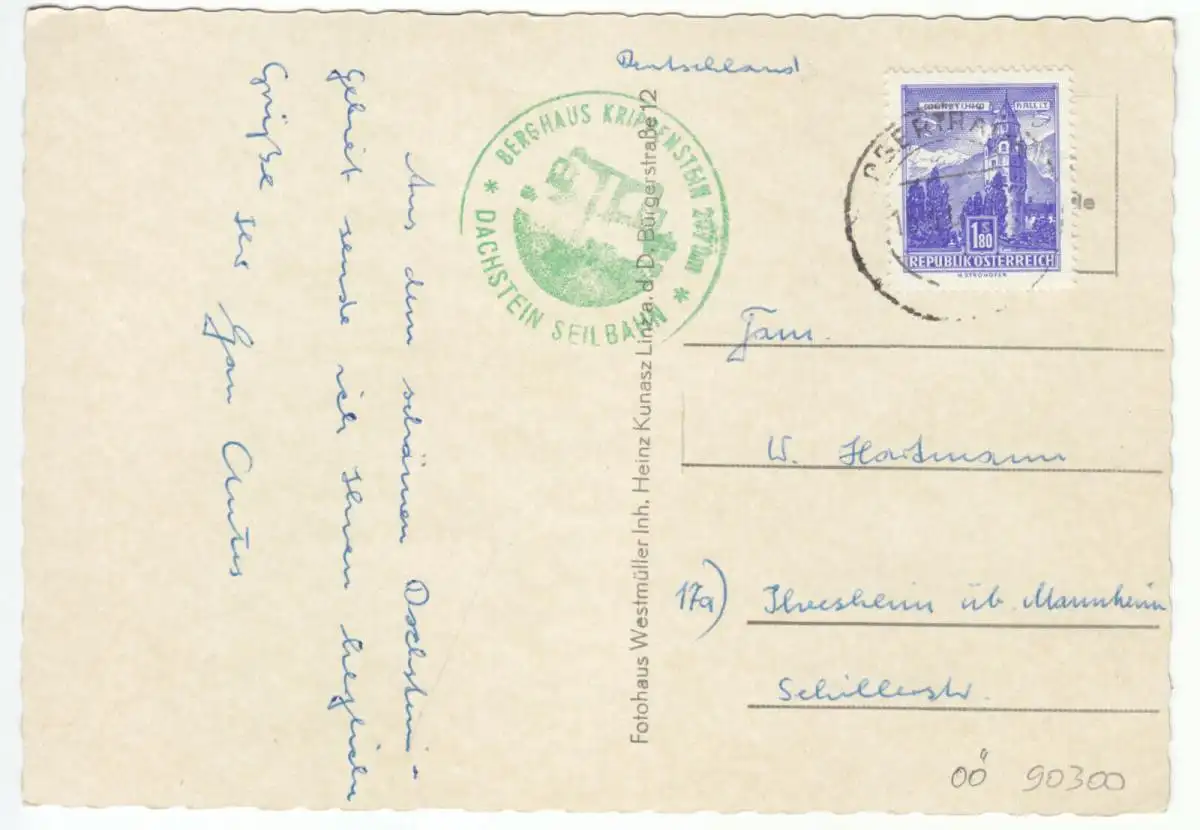 Aus dem schönen Dachstein-
gebiet sende ich Ihnen herzlichen
Grüße Ihr
BERGHAUS KRIPPENSTEIN
* DACHSTEIN SEILBAHN *
Fotohaus Westmüller Inh. Heinz Kunasz Linz a. d. D. Bürgerstraße 12
Deutschland
1S80
REPUBLIK ÖSTERREICH
H. STROHOFER
Fam.
W. Hartmann
17a) Ilvesheim üb. Mannheim
Schillerstr.
OÖ 90300